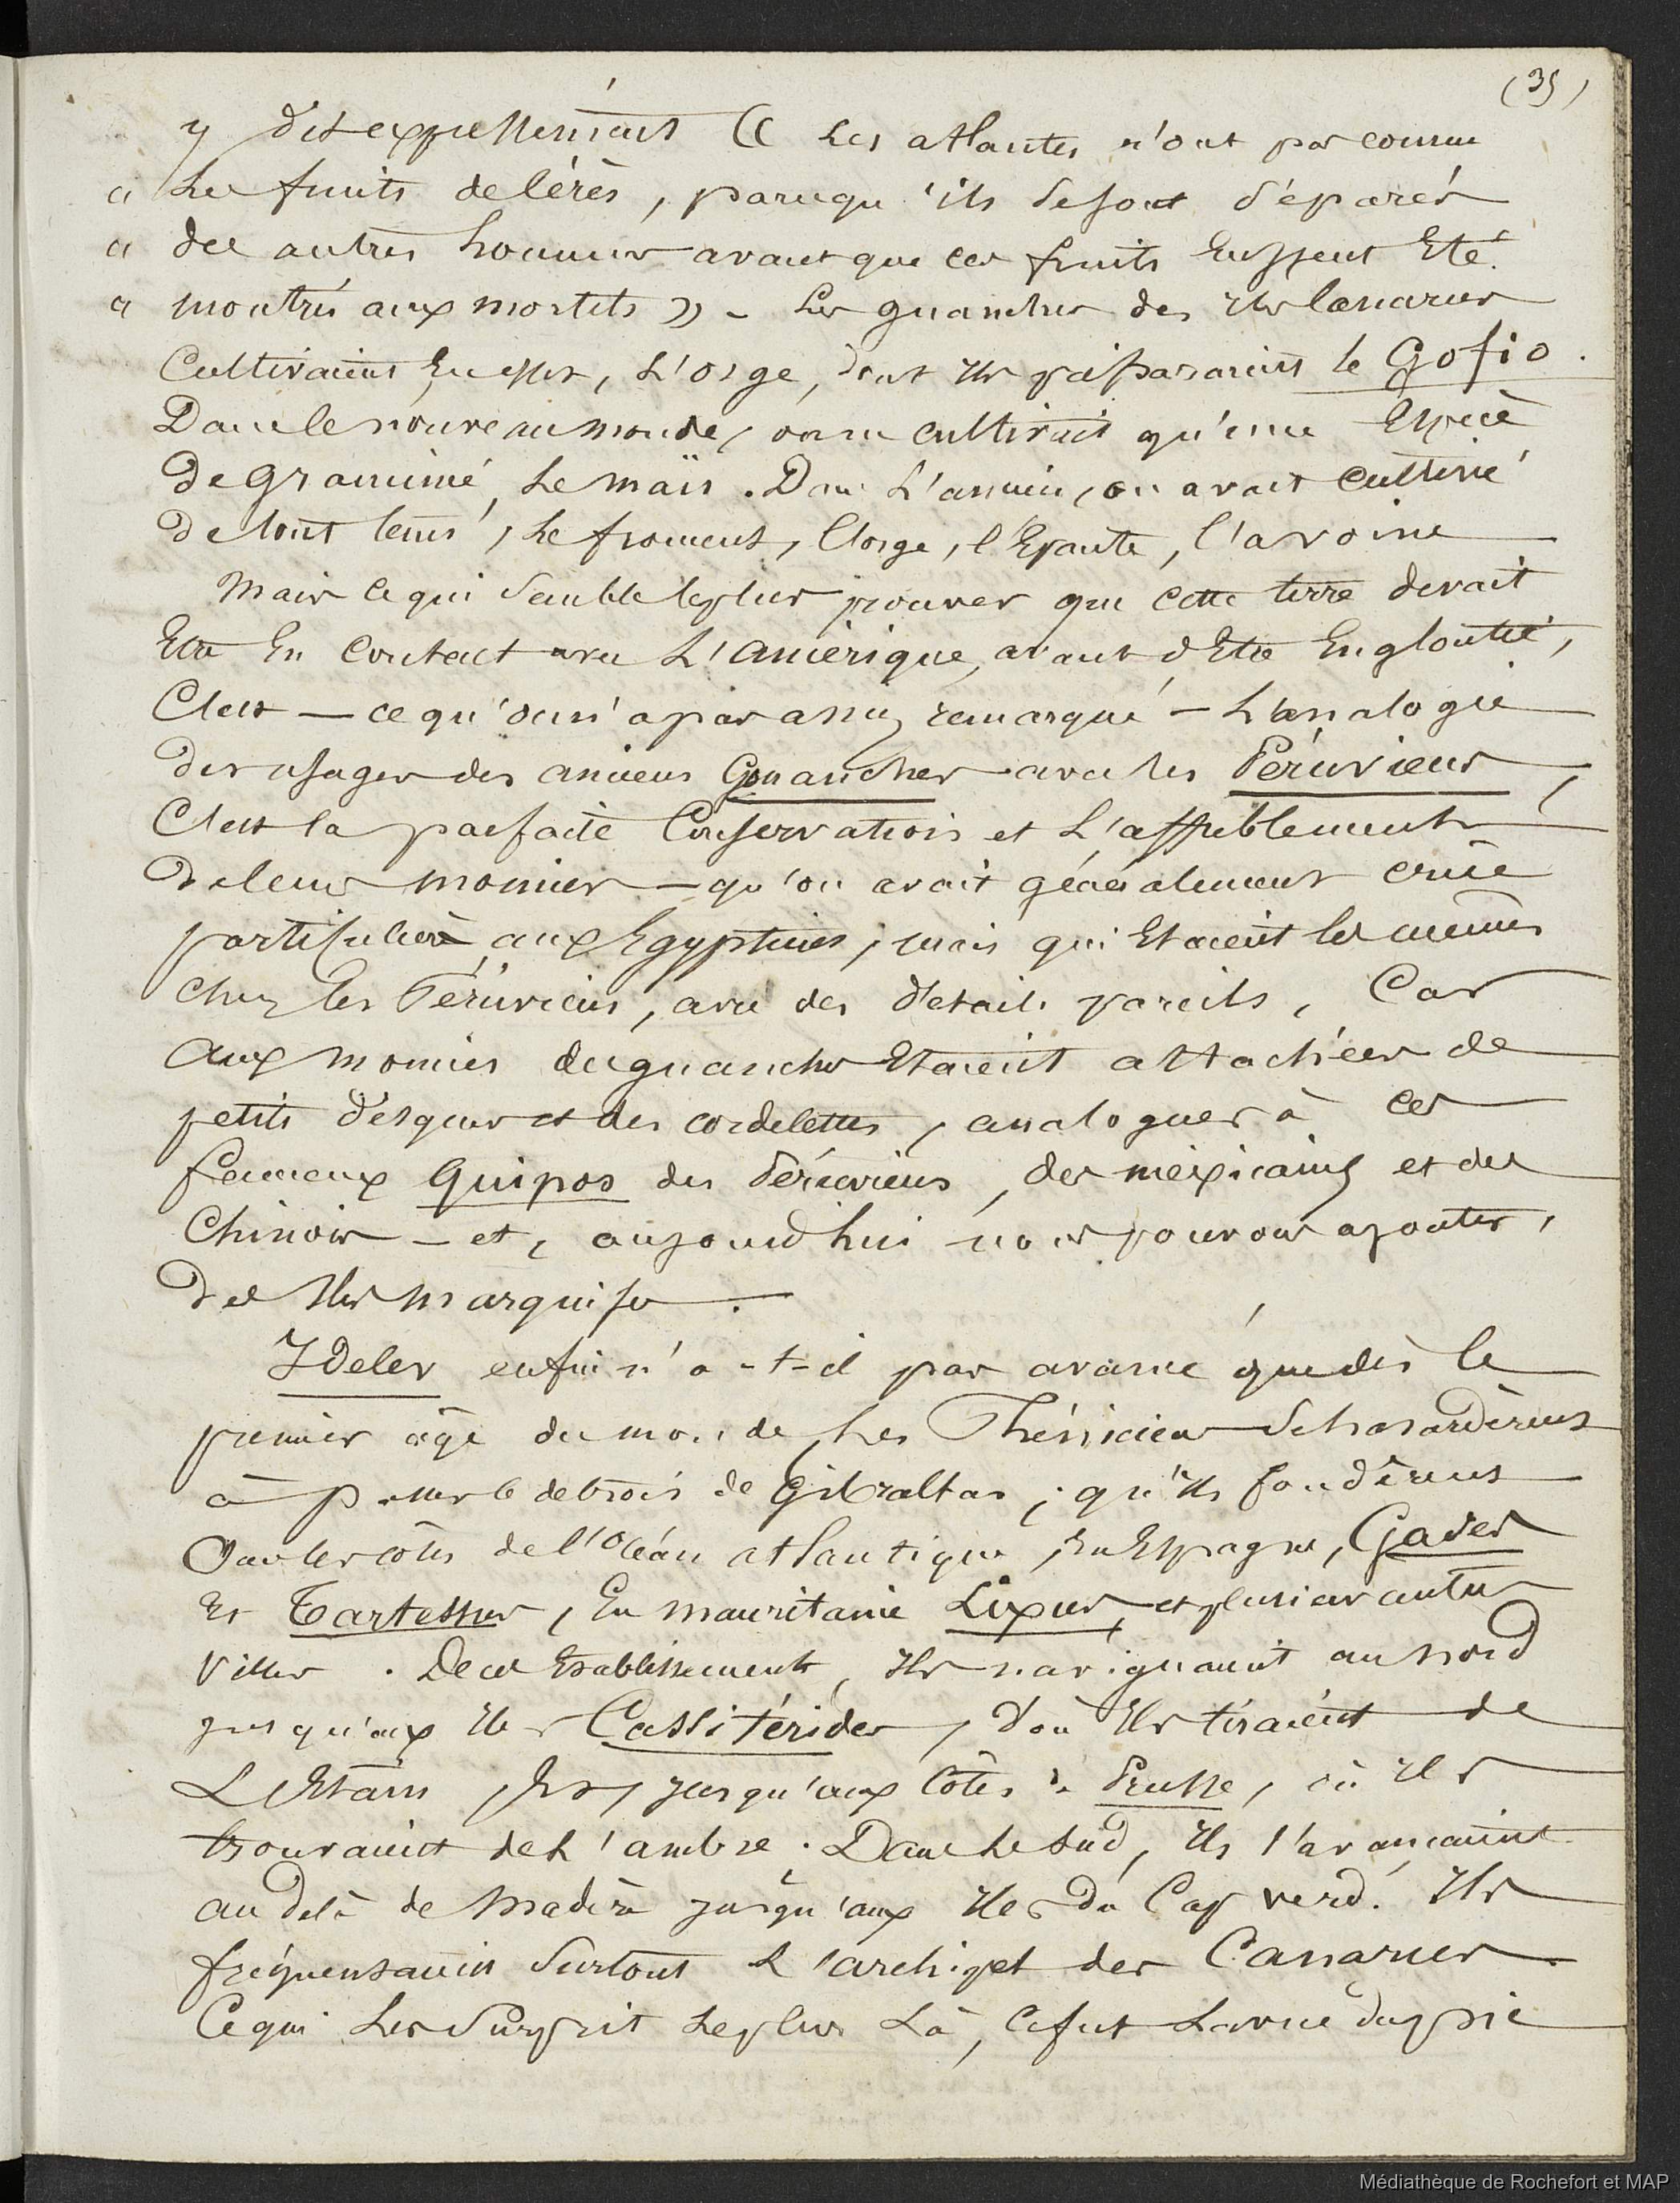 (35)
y dit expressément (( Les atlantes n'ont pas connu
« Les fruits de Cérès, parcequ'ils se sont séparés
« des autres hommes avant que ces fruits Eussent Eté
« montrés aux mortels )) - Les guanches des Iles Canaries
Cultivaient, En effet, L'orge, dont Ils préparaient le Gofio.
Dans le nouveau monde, on ne cultivait qu'une Espèce
de graminé, Le maïs. Dans L'ancien, on avait cultivé
de tout tems, Le froment, l'orge, l'Epautre, l'avoine
Mais ce qui semble le plus prouver que cette terre devait
Etre En contact avec L'amérique, avant d'Etre Engloutie,
C'est — ce qu'on n'a pas assez remarqué — L'analogie
des usages des anciens Guanches avec les Péruviens,
C'est la parfaite Conservation et L'affublement
de leurs momies — qu'on avait généralement crüe
particulière aux Egyptiens, mais qui Etaient les mêmes
chez les Péruviens, avec des détails pareils, Car
aux momies des guanches Etaient attachées de
petits disques et des cordelettes, analogues à ces
fameux Quipos des Péruviens, des mexicains et des
Chinois — et, aujourd'hui nous pouvons ajouter,
des Iles marquises.
Ideler enfin n'a-t-il pas avancé que dès le
premier âge du monde, Les Phéniciens se hasardèrent
à passer le detroit de Gibraltar; qu'Ils fondèrent
sur les côtes de l'Océan atlantique, En Espagne, Gades
Et Tartessus, En mauritanie Lixus, et plusieurs autres
Villes. De ces Etablissements, Ils naviguaient au nord
jusqu'aux Iles Cassitérides, d'où Ils tiraient de
L'Etain, Et, jusqu'aux Côtes de Prusse, où Ils
trouvaient de L'ambre. Dans Le Sud, Ils s'avançaient
au delà de Madère jusqu'aux Iles du Cap verd. Ils
fréquentaient surtout L'archipel des Canaries.
Ce qui Les surprit Le plus Là, ce fut La vue du pic
Médiathèque de Rochefort et MAP